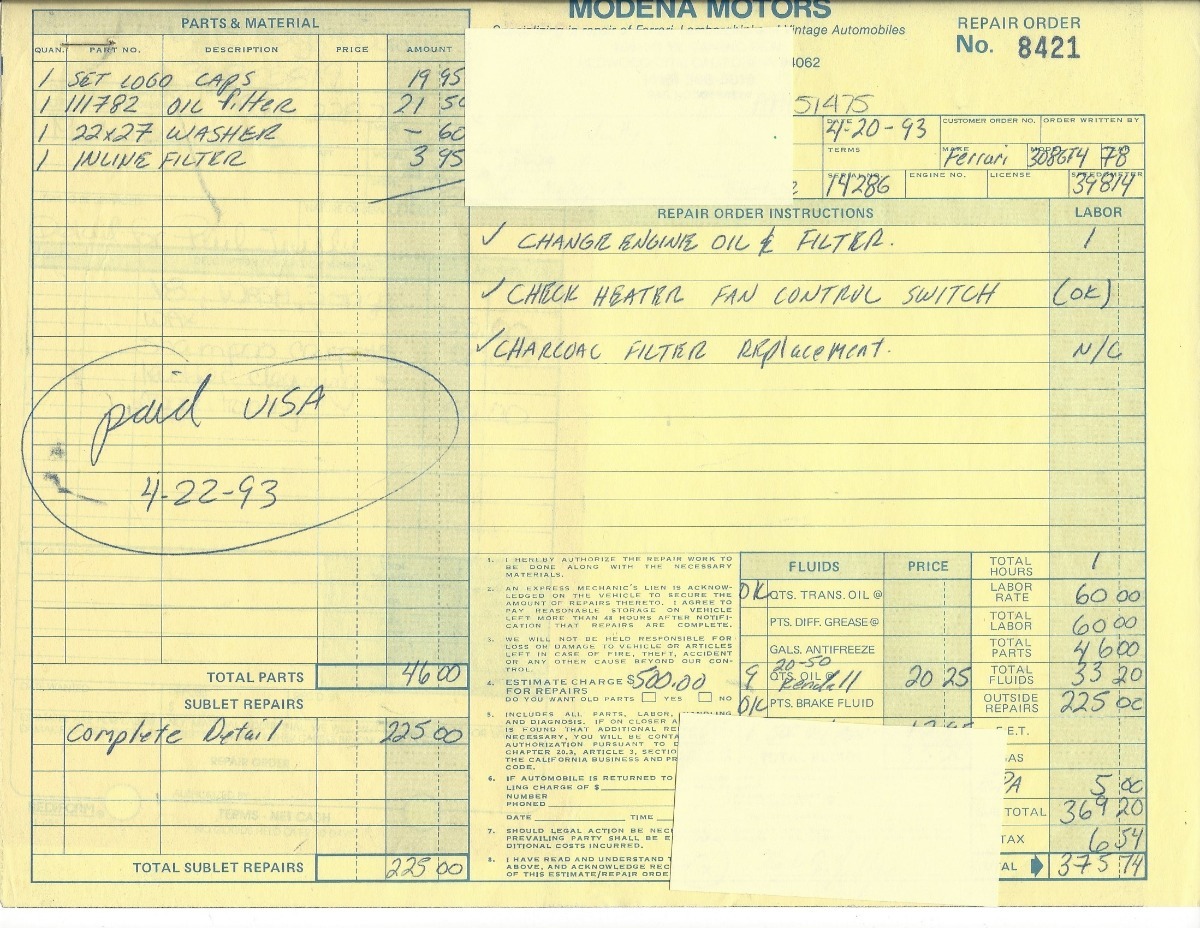 MODENA MOTORS
Vintage Automobiles
4062
REPAIR ORDER
No. 8421
51475
PARTS & MATERIAL
QUAN. PART NO. DESCRIPTION PRICE AMOUNT
1 SET LOGO CAPS 19 95
1 111782 OIL Filter 21 50
1 22x27 WASHER — 60
1 INLINE FILTER 3 95
DATE 4-20-93 CUSTOMER ORDER NO. ORDER WRITTEN BY
TERMS MAKE Ferrari MODEL 308GT4 YEAR 78
SERIAL NO. 14286 ENGINE NO. LICENSE SPEEDOMETER 39814
REPAIR ORDER INSTRUCTIONS LABOR
✓ CHANGE ENGINE OIL & FILTER. 1
✓ CHECK HEATER FAN CONTROL SWITCH (OK)
✓ CHARCOAL FILTER REPlacement. N/C
paid VISA
4-22-93
TOTAL PARTS 46 00
SUBLET REPAIRS
Complete Detail 225 00
TOTAL SUBLET REPAIRS 225 00
1. I HEREBY AUTHORIZE THE REPAIR WORK TO
BE DONE ALONG WITH THE NECESSARY
MATERIALS.
2. AN EXPRESS MECHANIC'S LIEN IS ACKNOW-
LEDGED ON THE VEHICLE TO SECURE THE
AMOUNT OF REPAIRS THERETO. I AGREE TO
PAY REASONABLE STORAGE ON VEHICLE
LEFT MORE THAN 48 HOURS AFTER NOTIFI-
CATION THAT REPAIRS ARE COMPLETE.
3. WE WILL NOT BE HELD RESPONSIBLE FOR
LOSS OR DAMAGE TO VEHICLE OR ARTICLES
LEFT IN CASE OF FIRE, THEFT, ACCIDENT
OR ANY OTHER CAUSE BEYOND OUR CON-
TROL.
4. ESTIMATE CHARGE $500.00
FOR REPAIRS
DO YOU WANT OLD PARTS YES NO
5. INCLUDES ALL PARTS, LABOR, HANDLING
AND DIAGNOSIS. IF ON CLOSER A
IS FOUND THAT ADDITIONAL RE
NECESSARY, YOU WILL BE CONTA
AUTHORIZATION PURSUANT TO D
CHAPTER 20.3, ARTICLE 3, SECTIO
THE CALIFORNIA BUSINESS AND PR
CODE.
6. IF AUTOMOBILE IS RETURNED TO
LING CHARGE OF $
NUMBER
PHONED
DATE TIME
7. SHOULD LEGAL ACTION BE NEC
PREVAILING PARTY SHALL BE E
DITIONAL COSTS INCURRED.
8. I HAVE READ AND UNDERSTAND T
ABOVE, AND ACKNOWLEDGE REC
OF THIS ESTIMATE/REPAIR ORDE
FLUIDS PRICE
OK QTS. TRANS. OIL @
PTS. DIFF. GREASE @
GALS. ANTIFREEZE
20-50
9 QTS. OIL @ Kendall 20 25
OK PTS. BRAKE FLUID
TOTAL HOURS 1
LABOR RATE 60 00
TOTAL LABOR 60 00
TOTAL PARTS 46 00
TOTAL FLUIDS 33 20
OUTSIDE REPAIRS 225 00
.E.T.
AS
PA 5 00
TOTAL 369 20
TAX 6 54
AL 375 74